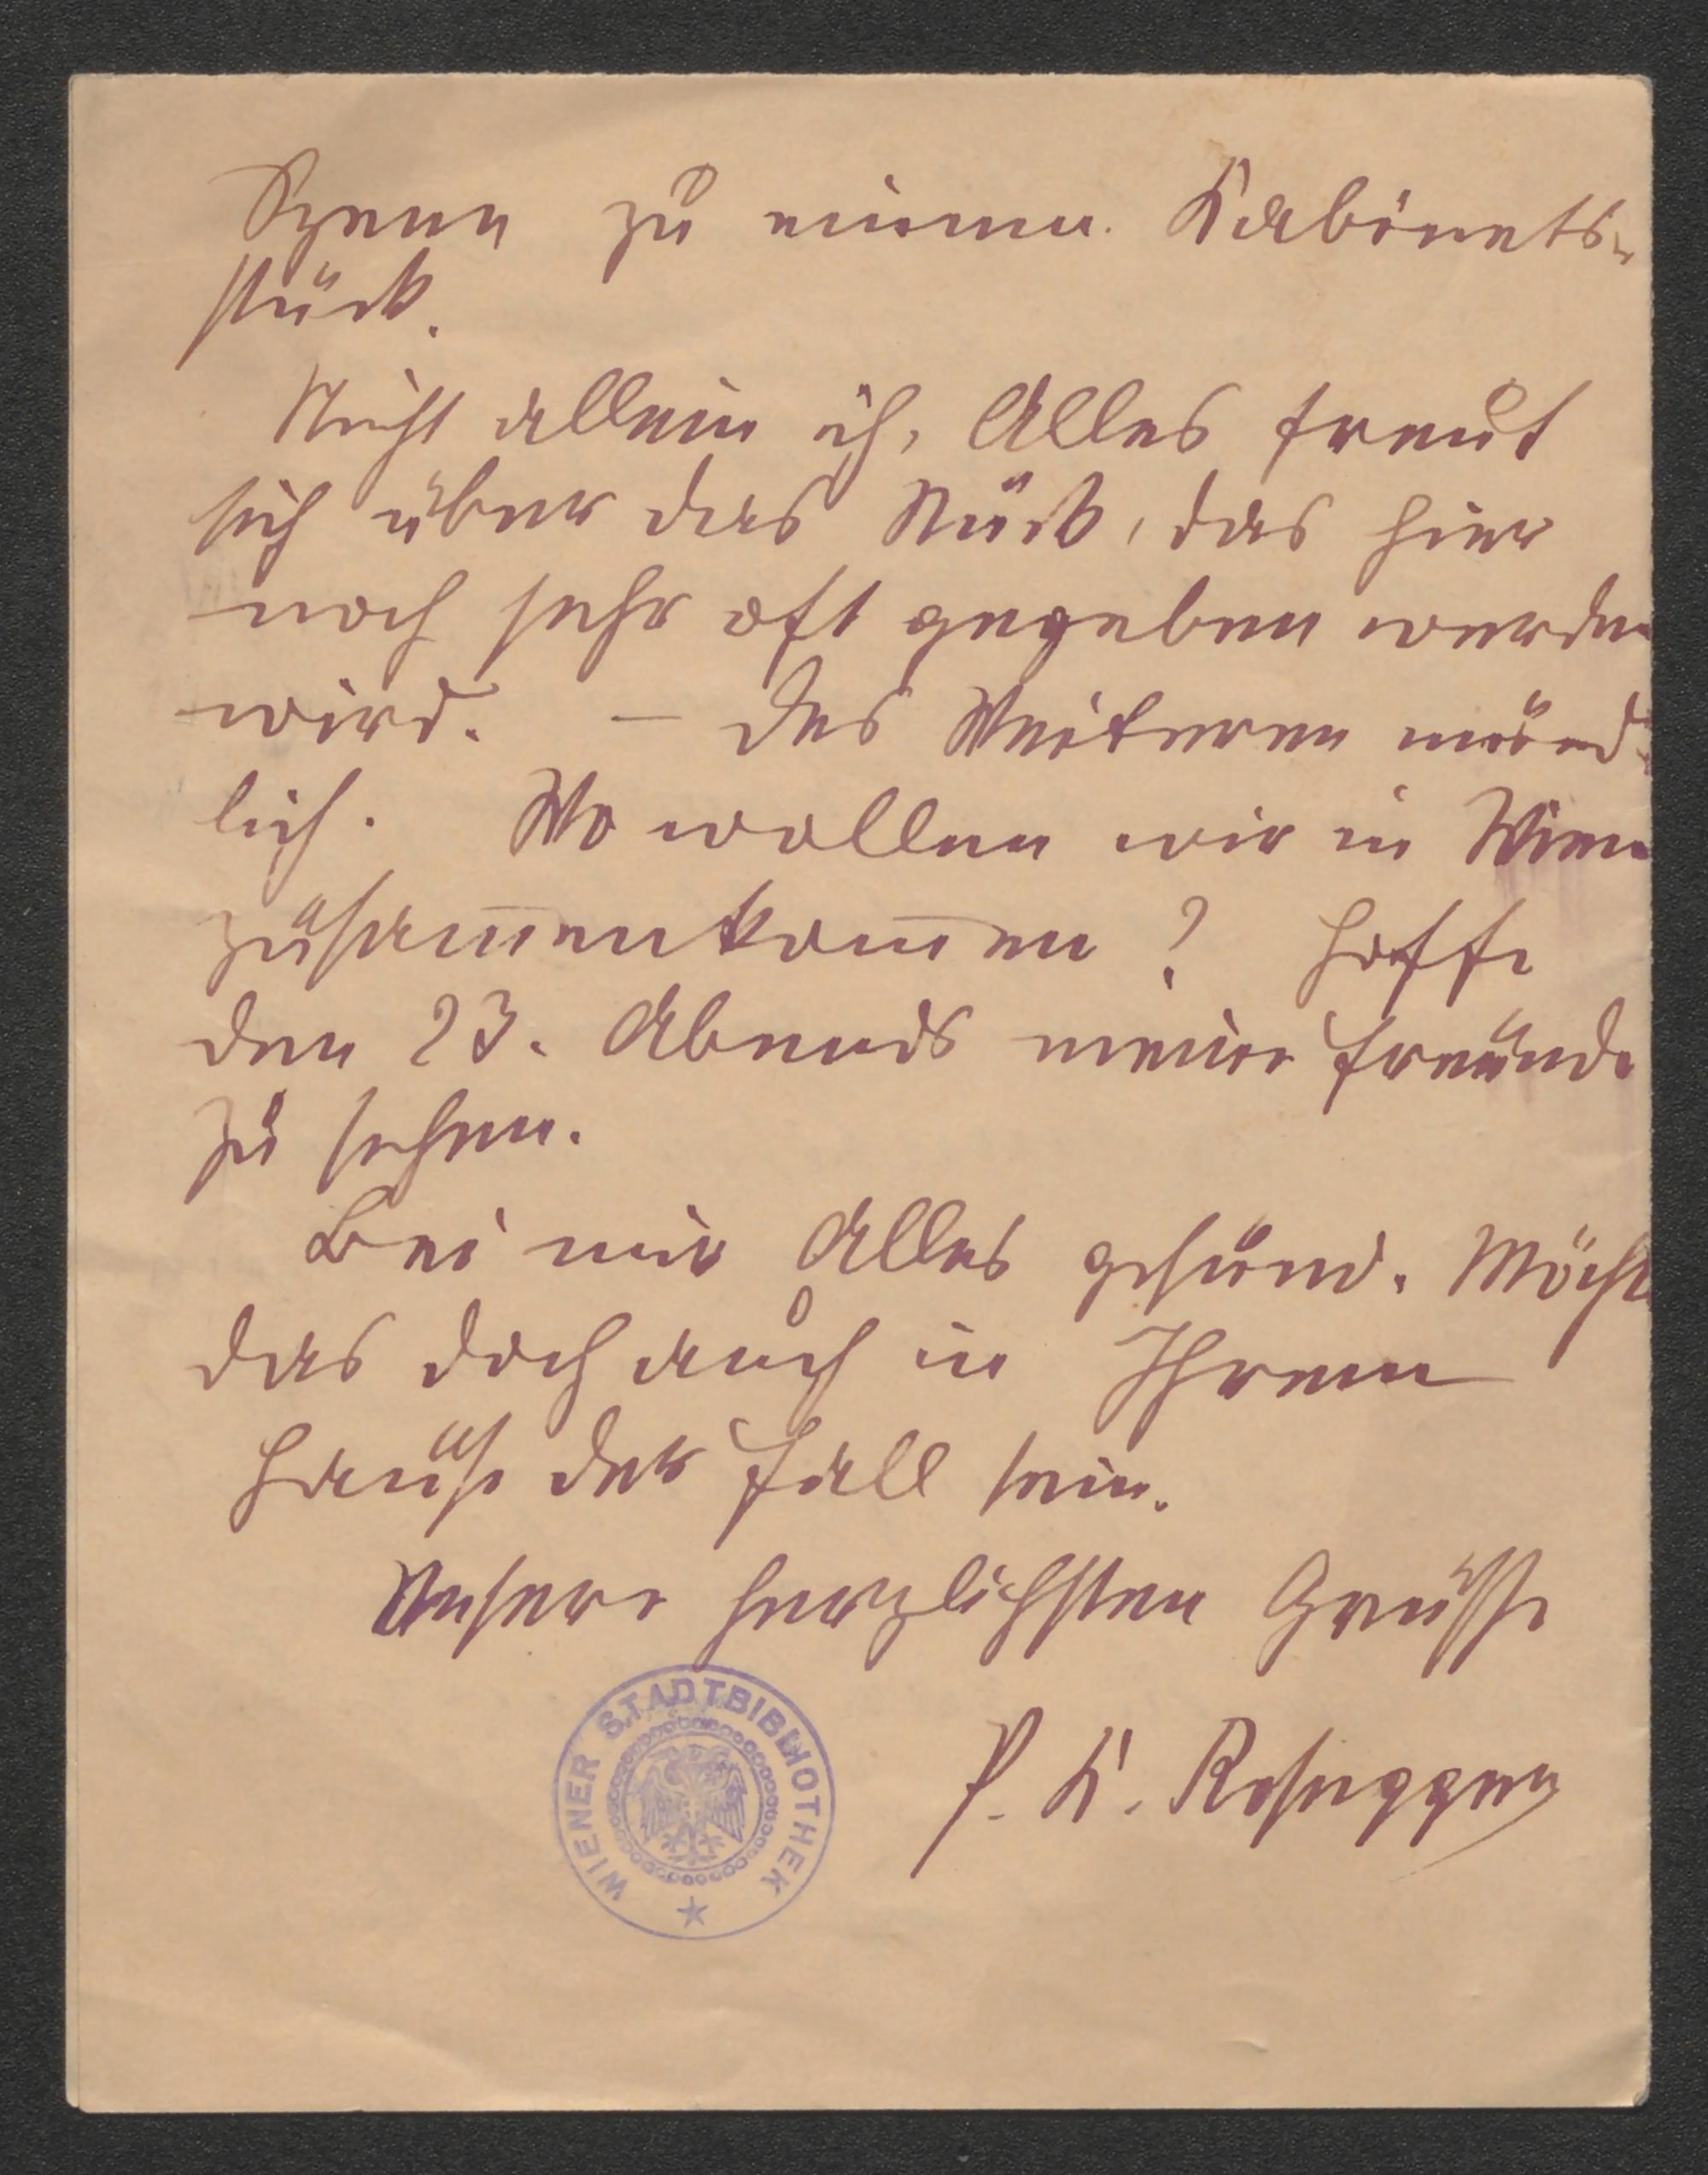 Szene zu einem Kabinets-
stück.
Nicht allein ich, Alles freut
sich über das Stück, das hier
noch sehr oft gegeben werden
wird. — Des Weiteren münd-
lich. Wo wollen wir in Wien
zusam̅enkom̅en? Hoffe
den 23. Abends meine Freunde
zu sehen.
Bei mir Alles gesund. Möchte
das doch auch in Ihrem
Hause der Fall sein.
Unsere herzlichsten Grüsse
P. K. Rosegger
WIENER STADTBIBLIOTHEK